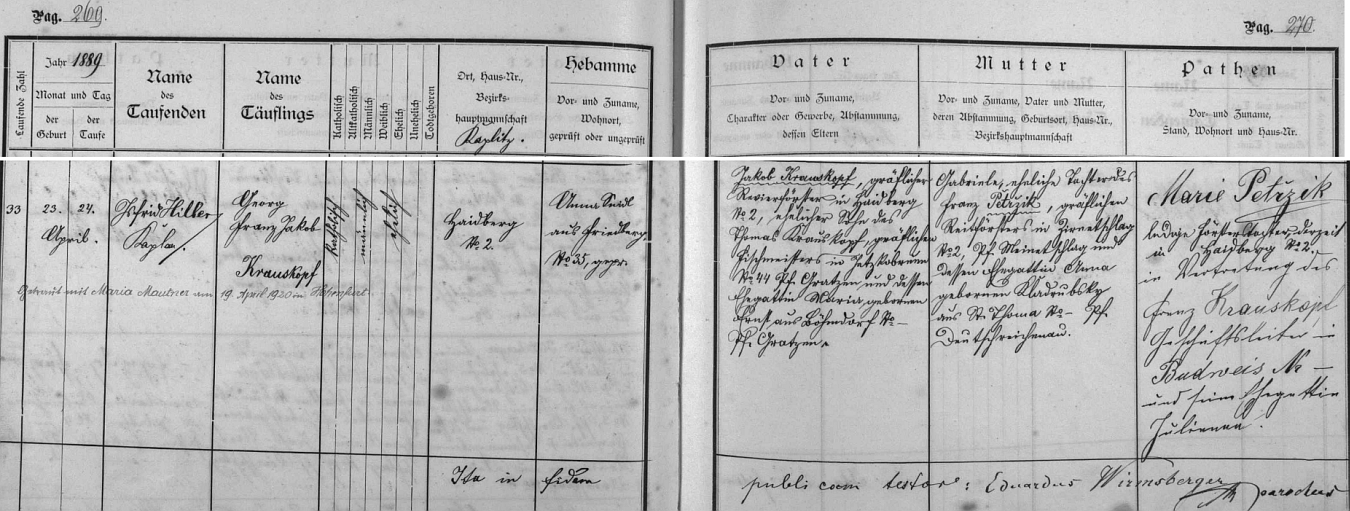 Pag. 269.
Laufende Zahl
Jahr 1889
Monat und Tag
der Geburt
der Taufe
Name
des
Taufenden
Name
des
Täuflings
Katholisch
Altkatholisch
Männlich
Weiblich
Ehelich
Unehelich
Todtgeboren
Ort, Haus-Nr.,
Bezirks-
hauptmannschaft
Kaplitz.
Hebamme
Vor- und Zuname,
Wohnort,
geprüft oder ungeprüft
33
23.
24.
April.
Gotfrid Hilber
Kaplan
Georg
Franz Jakob
Krauskopf
Getraut mit Maria Mautner am 19. April 1920 in
katholisch
männlich
ehelich
Haidberg
№ 2.
Anna
aus Friedberg
№ 35, gepr.
Ita in fidem
Pag. 270.
Vater
Vor- und Zuname,
Charakter oder Gewerbe, Abstammung,
dessen Eltern
Mutter
Vor- und Zuname, Vater und Mutter,
deren Abstammung, Geburtsort, Haus-Nr.,
Bezirkshauptmannschaft
Pathen
Vor- und Zuname,
Stand, Wohnort und Haus-Nr.
Jakob Krauskopf, gräflicher
Revierförster in Haidberg
№ 2, ehelicher Sohn des
Thomas Krauskopf, gräflichen
Fischmeisters in
№ 44 Pf. Gratzen und dessen
Ehegattin Maria gebornen
Ernst aus Böhmdorf № –
Pf. Gratzen.
Gabriele, eheliche Tochter des
Franz Petrzik, gräflichen
Revierförsters in
№ 2, Pf. Meinetschlag und
dessen Ehegattin Anna
gebornen Kladrubsky
aus St. Thoma № – Pf.
Deutschreichenau.
Marie Petrzik
ledige Försterstochter, derzeit
in Haidberg № 2.
in Vertretung des
Franz Krauskopf
Geschäftsleiter in
Budweis № –
und seine Ehegattin
Julianna.
publicam testor: Eduardus Wirmsberger
parochus